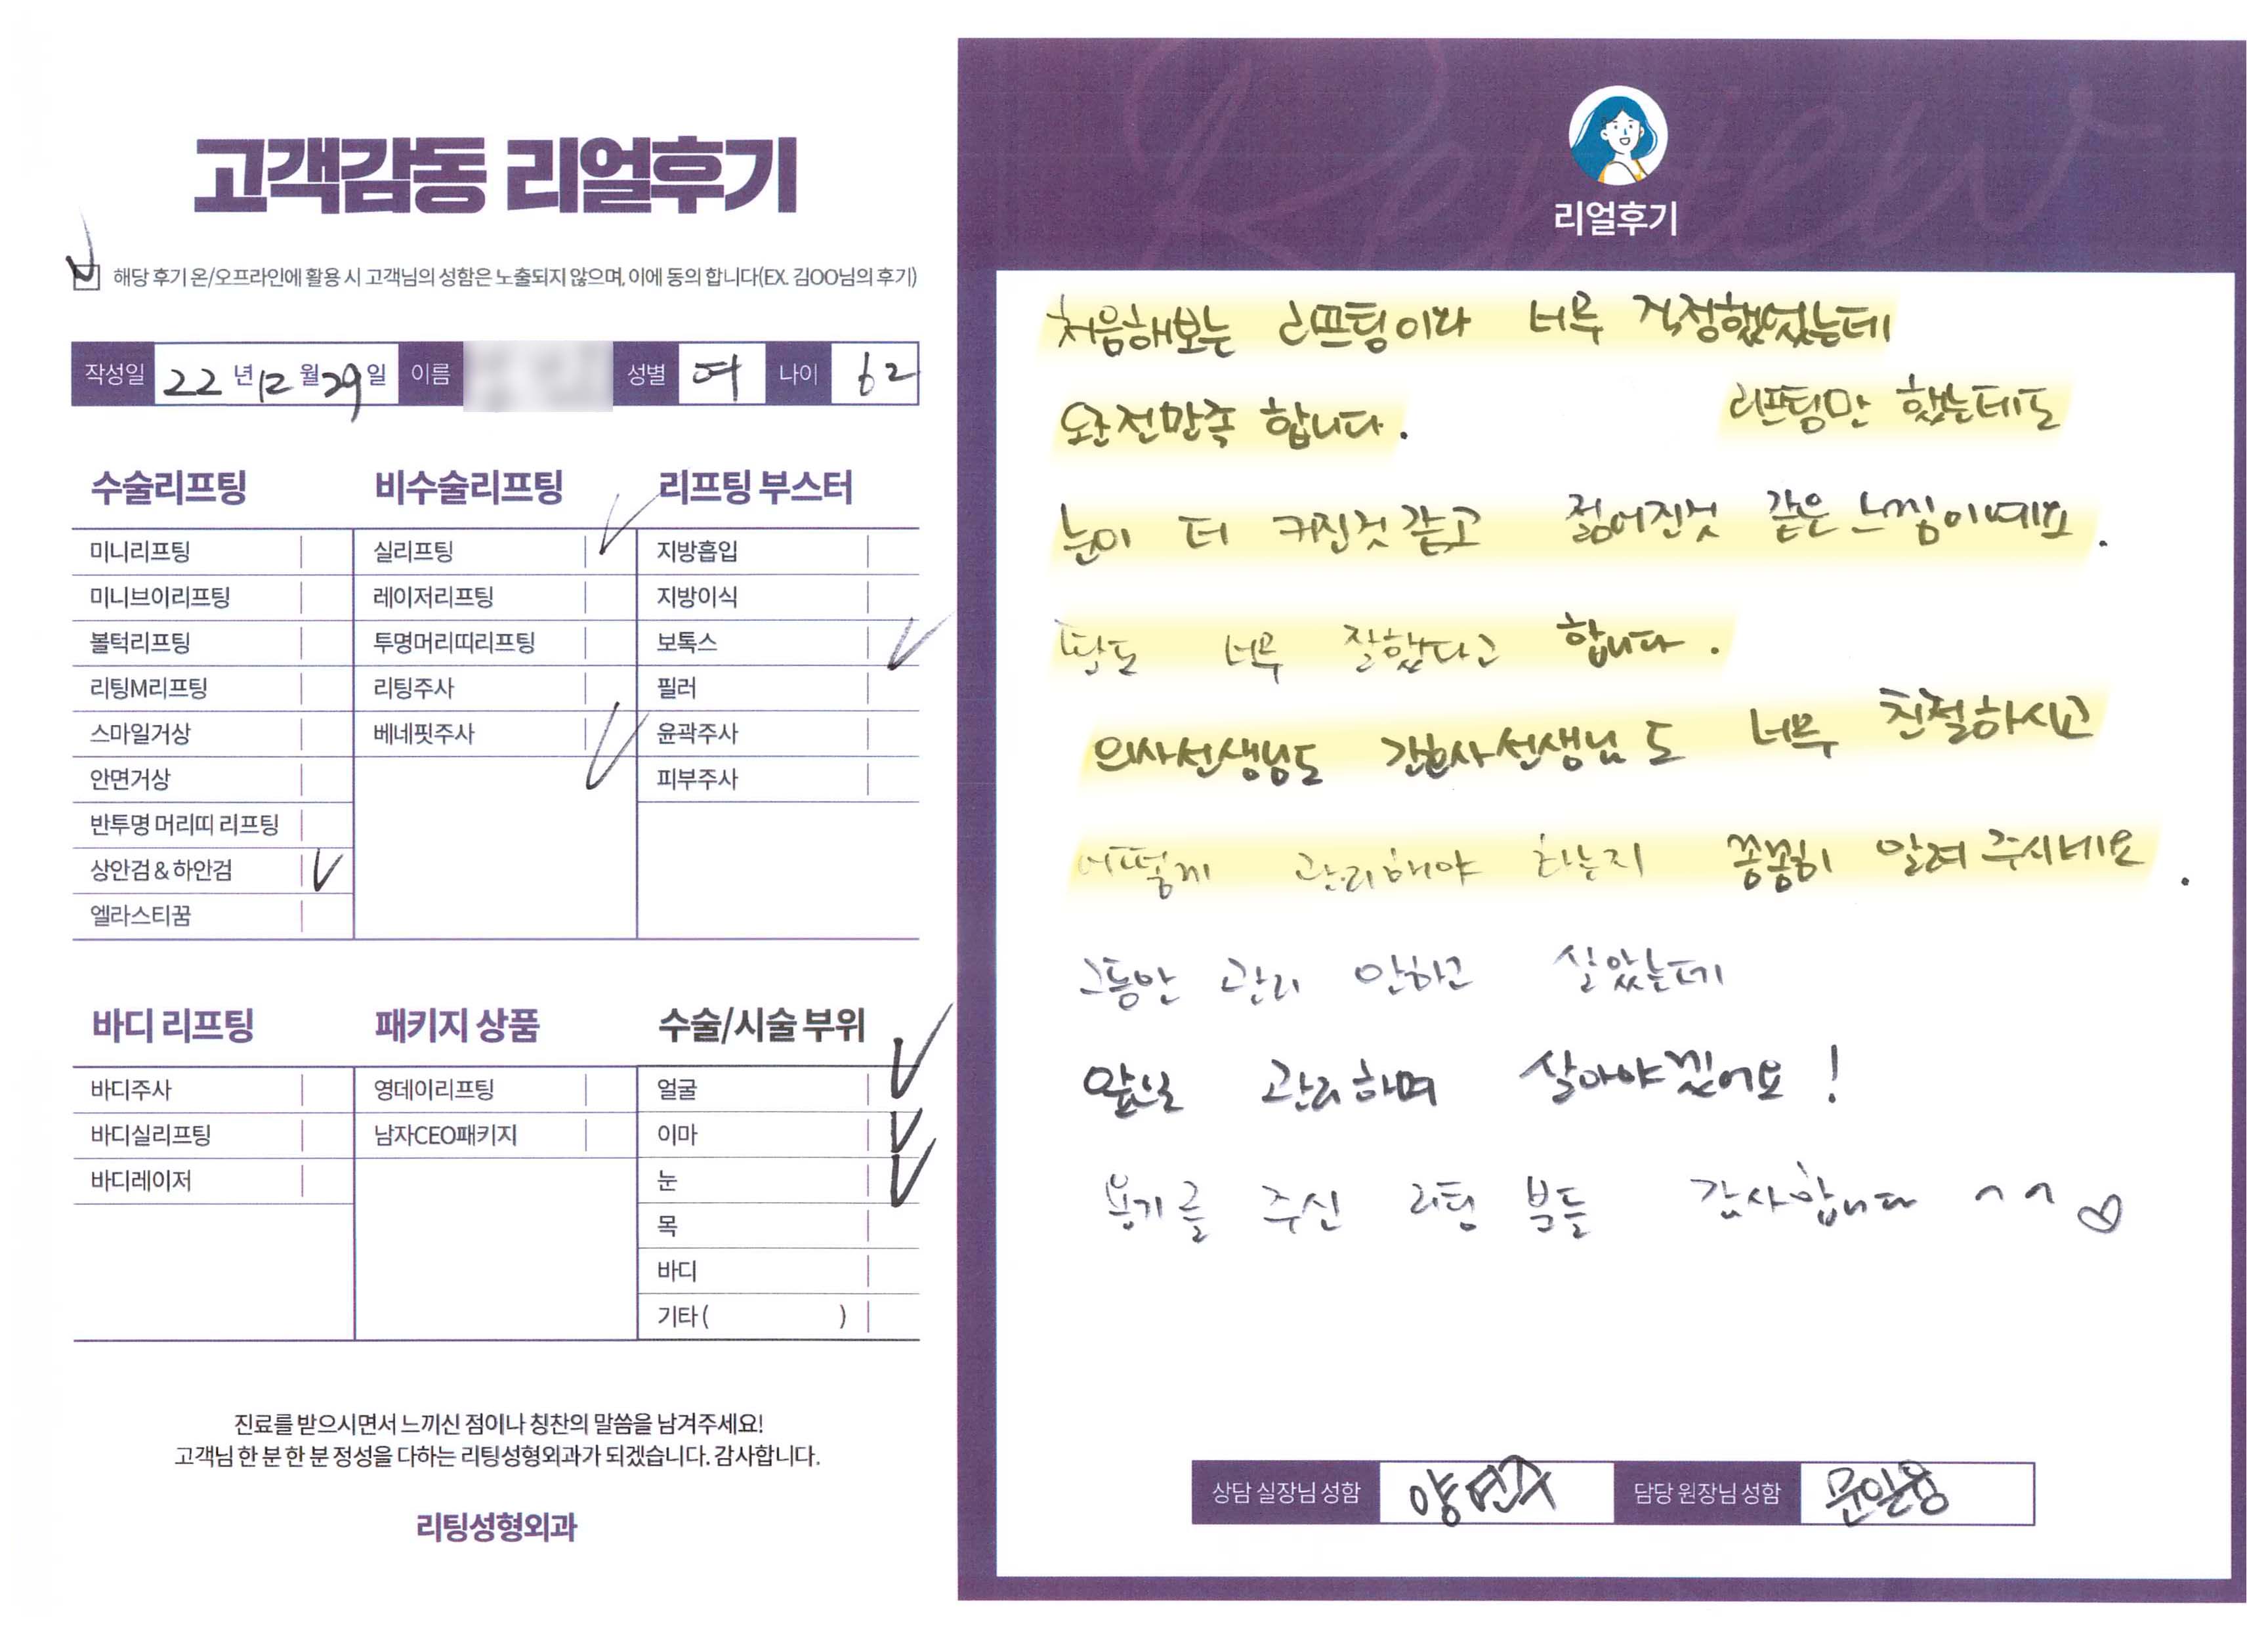 고객감동 리얼후기
해당 후기 온/오프라인에 활용 시 고객님의 성함은 노출되지 않으며, 이에 동의 합니다(EX. 김OO님의 후기)
작성일 22년 12월 29일 이름 성별 여 나이 62
수술리프팅
미니리프팅
미니브이리프팅
볼턱리프팅
리팅M리프팅
스마일거상
안면거상
반투명 머리띠 리프팅
상안검 & 하안검
엘라스티꿈
비수술리프팅
실리프팅
레이저리프팅
투명머리띠리프팅
리팅주사
베네핏주사
리프팅 부스터
지방흡입
지방이식
보톡스
필러
윤곽주사
피부주사
바디 리프팅
바디주사
바디실리프팅
바디레이저
패키지 상품
영데이리프팅
남자CEO패키지
수술/시술 부위
얼굴
이마
눈
목
바디
기타 ( )
진료를 받으시면서 느끼신 점이나 칭찬의 말씀을 남겨주세요!
고객님 한 분 한 분 정성을 다하는 리팅성형외과가 되겠습니다. 감사합니다.
리팅성형외과
Review
리얼후기
처음해보는 리프팅이라 너무 걱정했었는데
완전만족 합니다. 리프팅만 했는데도
눈이 더 커진것 같고 젊어진것 같은 느낌이예요.
딸도 너무 잘했다고 합니다.
의사선생님도 간호사선생님도 너무 친절하시고
어떻게 관리해야 하는지 꼼꼼히 알려주시네요.
그동안 관리 안하고 살았는데
앞으로 관리하며 살아야겠어요!
용기를 주신 리팅 분들 감사합니다 ^^♡
상담 실장님 성함 양연수 담당 원장님 성함 문일웅